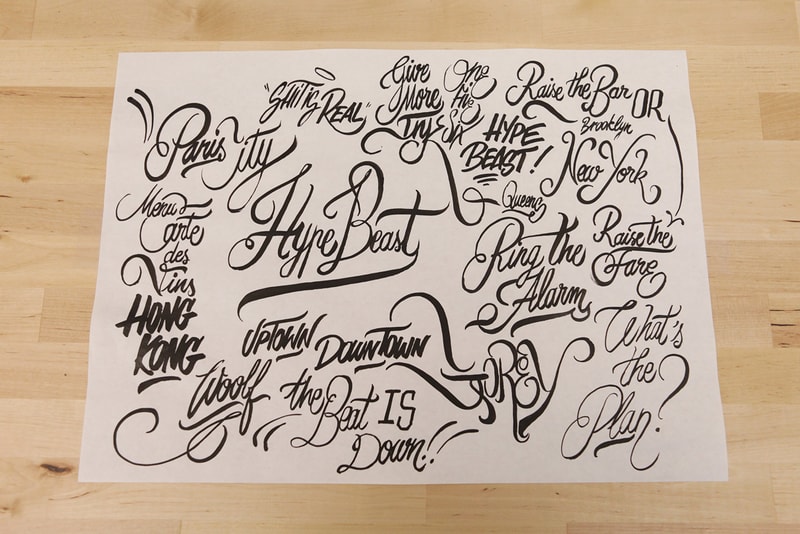 "SHIT IS
REAL"
Give
More
Try
One
Five
Six
Raise the Bar
OR
Brooklyn
New York
HYPE
BEAST!
Queens
Paris City
Hype Beast
Menu
Carte
des
Vins
HONG
KONG
Ring the
Alarm
Raise the
Fare
UPTOWN
DOWNTOWN
Woolf
the
Beat IS
Down!!
What's
the
Plan?